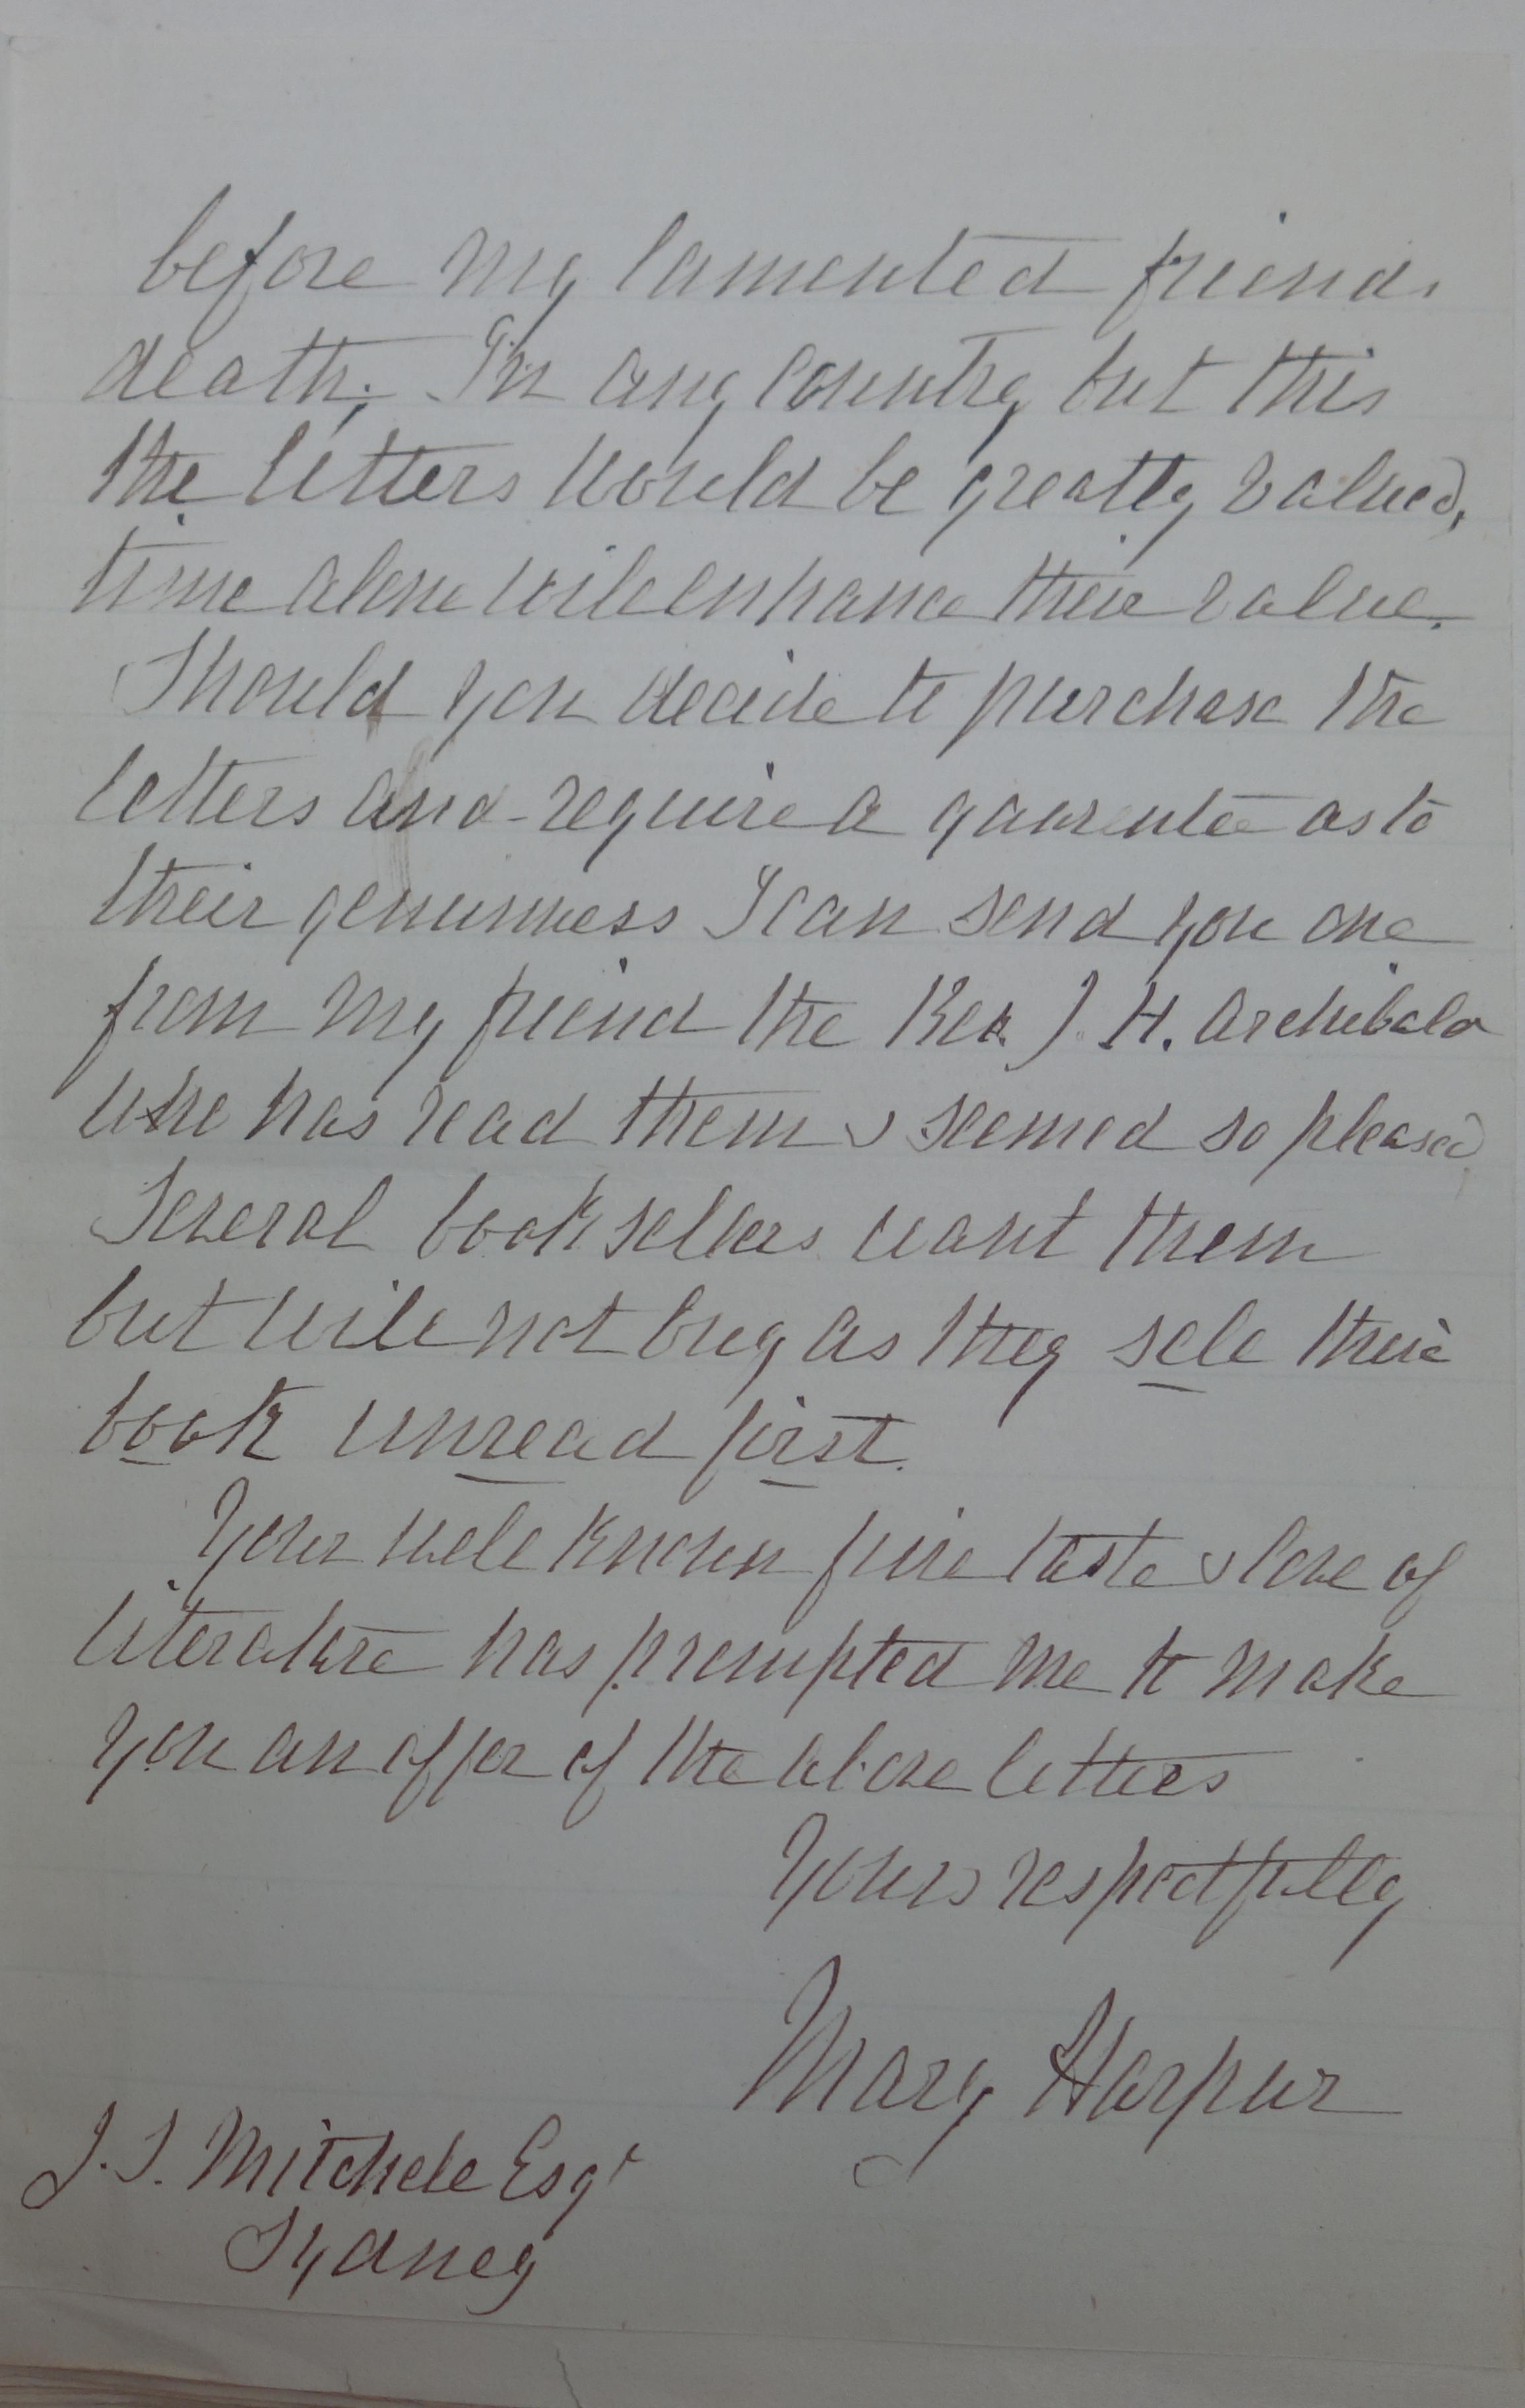 before my lamented friends
death; In any country but this
the letters would be greatly valued,
time alone will enhance their value.
Should you decide to purchase the
letters and require a gaurentee as to
their genuinness I can send you one
from my friend the Rev. J. H. Archibald
who has read them & seemed so pleased
Several book sellers want them
but will not buy as they sell their
book unread first.
Your well known fine taste & love of
literature has prompted me to make
you an offer of the above letters
Yours respectfully
Mary Harpur
J. S. Mitchell Esqr
Sydney